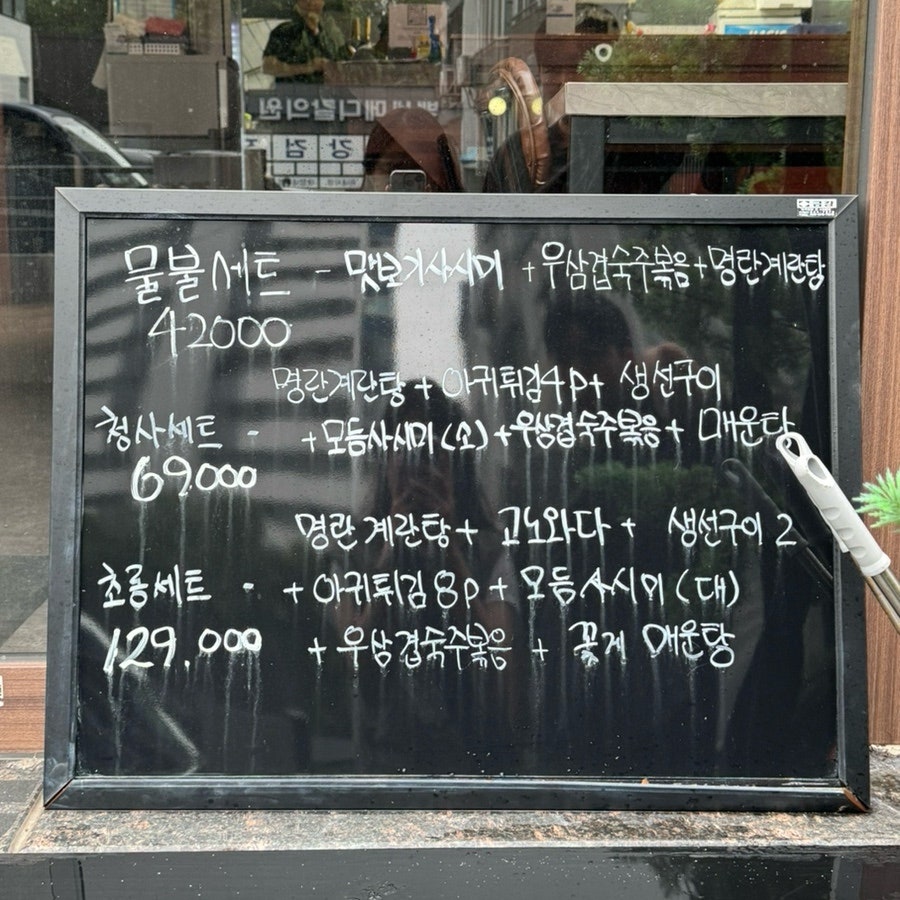 물불세트 - 맛보기사시미 + 우삼겹숙주볶음 + 명란계란탕
42000
명란계란탕 + 아귀튀김4p + 생선구이
청사세트 - + 모듬사시미(소) + 우삼겹숙주볶음 + 매운탕
69.000
명란계란탕 + 고노와다 + 생선구이 2
초롱세트 - + 아귀튀김 8p + 모듬사시미(대)
129.000 + 우삼겹숙주볶음 + 꽃게 매운탕